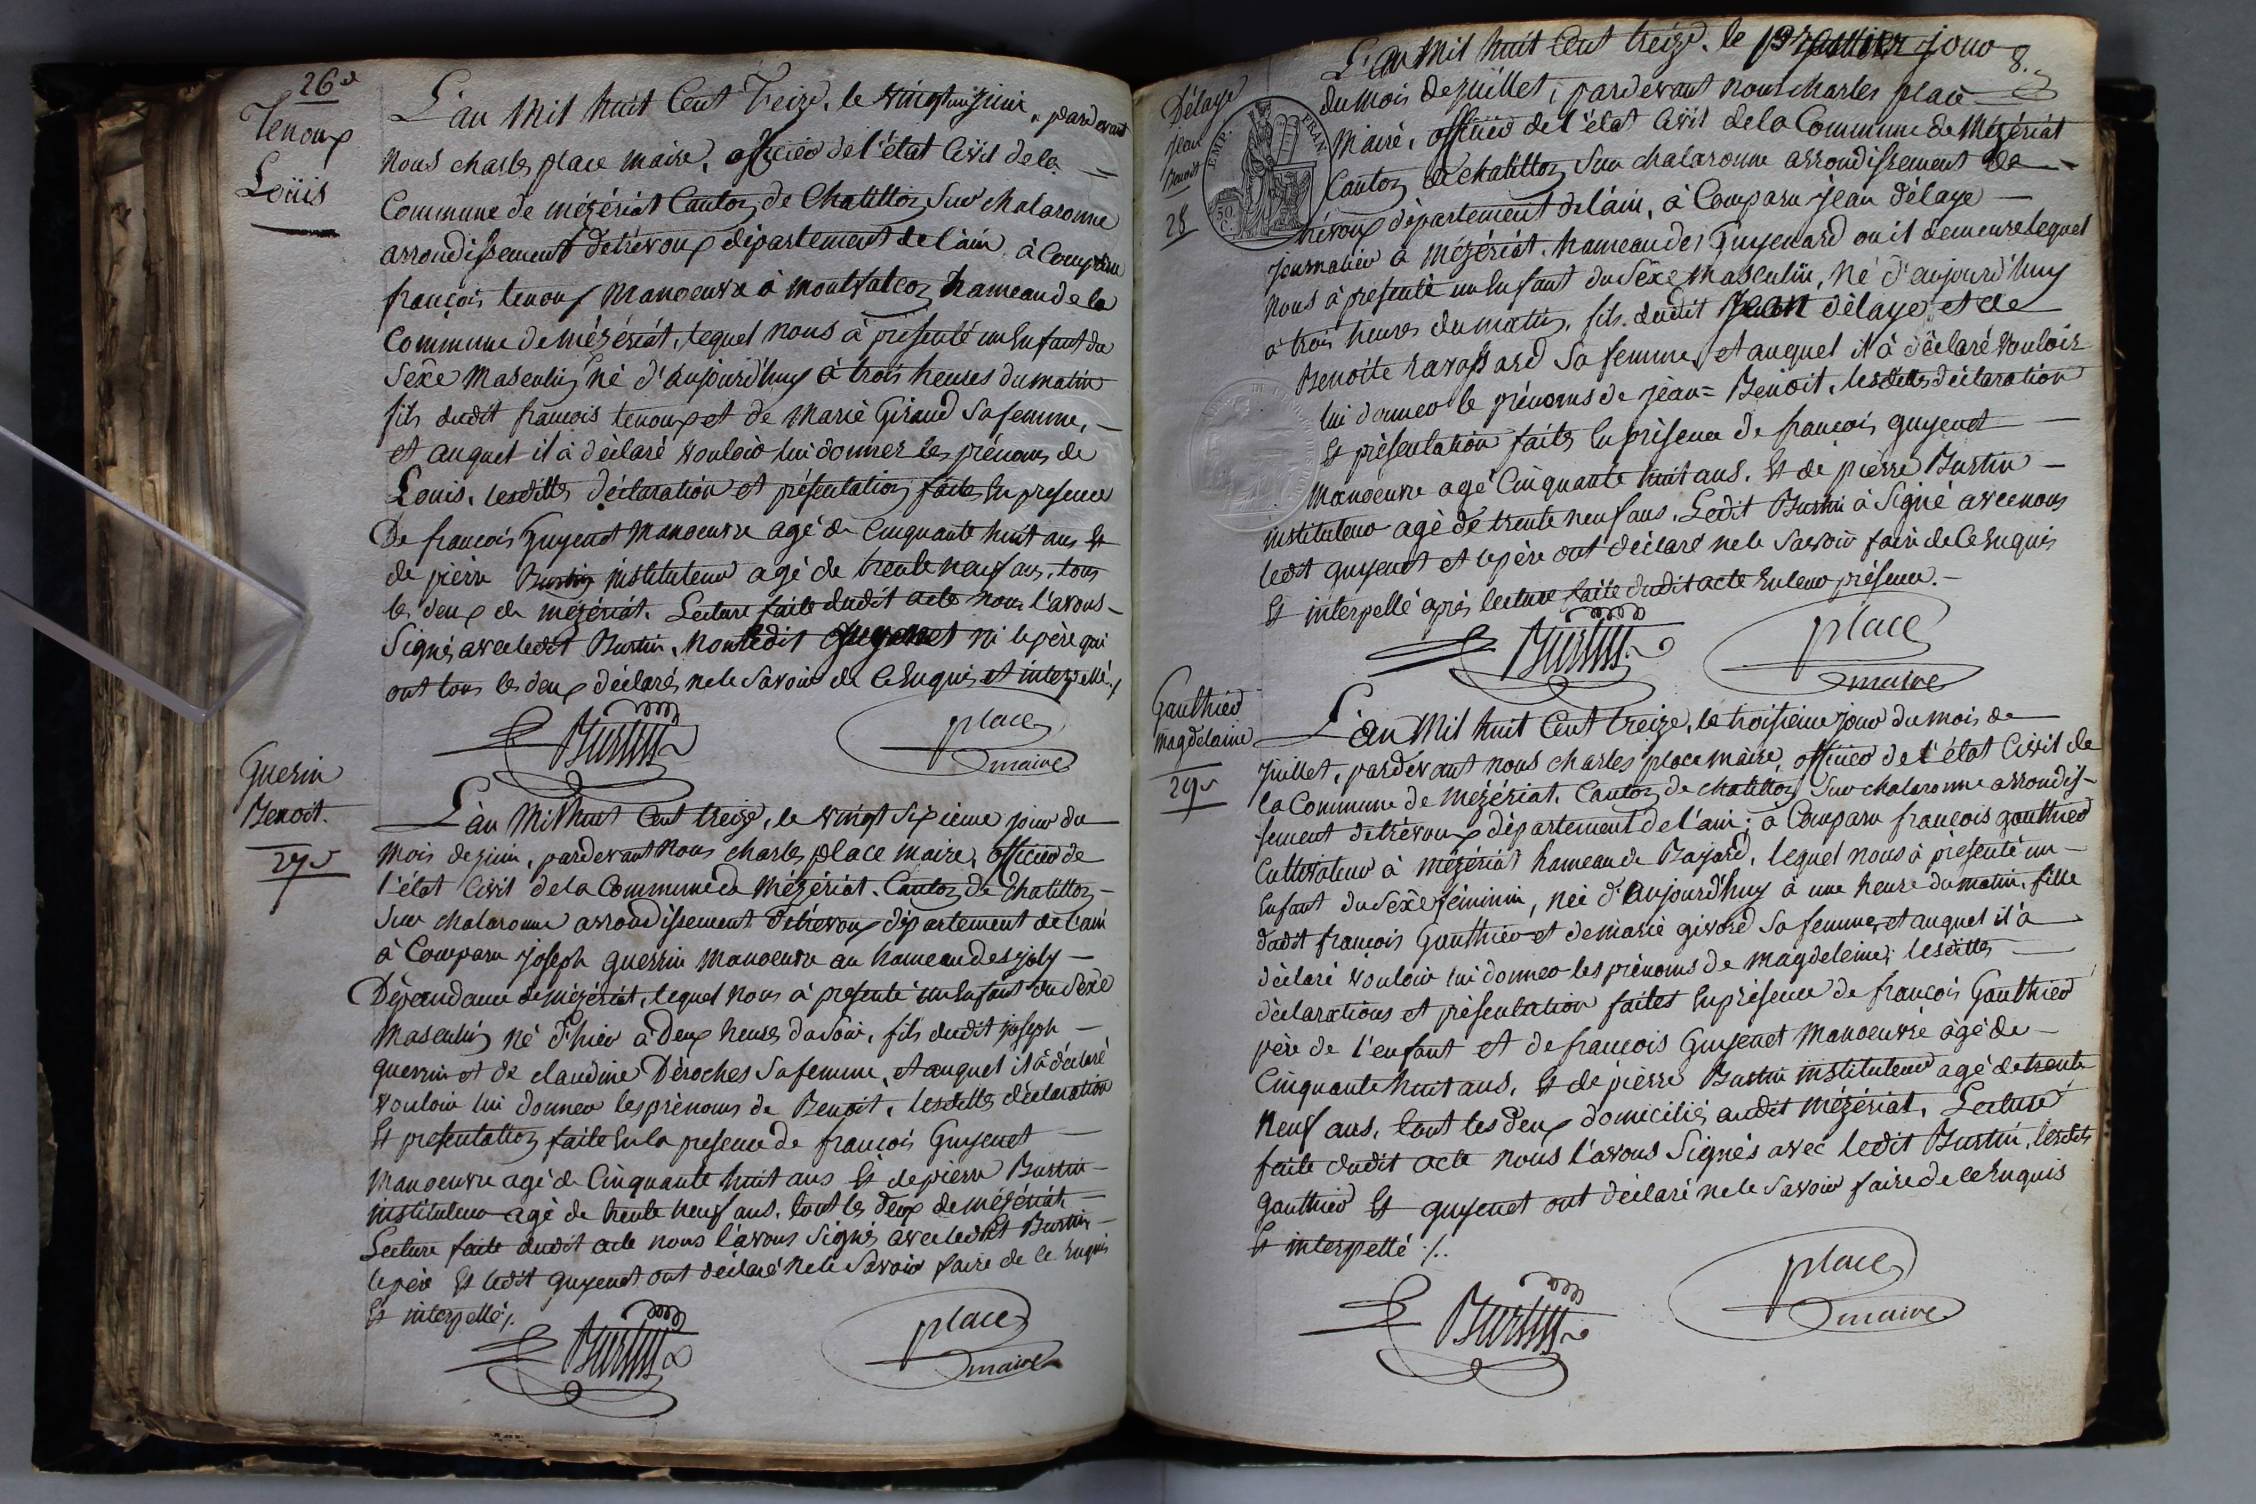 26e
Tenoux
Loüis
L'an Mil huit Cent Treize, le vingt juin, pardevant
Nous charles place maire, officier de l'état Civil de la
Commune de mézériat Canton de Chatillon Sur chalaronne
arrondissement detrévoux département de l'ain, à Comparu
françois tenoux Manoeuvre à montfalcon hameau de la
Commune de mézériat, lequel nous à présenté un Enfant du
Sexe Masculin né d'aujourd'huy à trois heures du matin
fils dudit francois tenoux et de Marie Giraud Sa femme,
et auquel il à déclaré vouloir lui donner les prénoms de
Louis, lesdittes déclaration et présentation faites En presence
De francois Guyenet Manoeuvre agé de Cinquante huit ans Et
de pierre Burtin instituteur agé de trente neuf ans, tous
les deux de mézériat. Lecture faite dudit acte nous l'avons
Signé avec ledit Burtin, Non ledit Guyenet ni le père qui
ont tous les deux déclarés ne le Savoir de ce Enquis et interpellé./
Burtin
place
maire
Guerin
Benoit.
27e
L'an Mil huit Cent treize, le vingt Sixieme jour du
Mois de juin, pardevant Nous charles place maire, officier de
l'état Civil de la Commune de Mézériat. Canton de Chatillon
Sur chalaronne arrondissement detrevoux département de l'ain
à Comparu joseph guerrin manoeuvre au hameau des joly
Dépendance de mézériat, lequel Nous à présenté un Enfant du Sexe
Masculin né d'hier à Deux heures du Soir, fils dudit joseph
guerrin et de claudine Déroches Sa femme, et auquel il à déclaré
vouloir lui donner les prénoms de Benoit, lesdittes déclaration
Et présentation faite En la presence de françois Guyenet
Manoeuvre agé de Cinquante huit ans Et de pierre Burtin
instituteur agé de trente neuf ans, tout les deux de mézériat
Lecture faite dudit acte nous l'avons Signé avec ledit Burtin
le père Et ledit guyenet ont déclaré ne le Savoir faire de ce Enquis
Et interpellé./.
Burtin
place
maire
8.
Délaye
Jean
Benoit
28
EMP. FRAN.
50 C.
L'an Mil huit Cent treize, le premier jour
du mois de juillet, pardevant nous charles place
Maire, officier de l'état Civil de la Commune de Mézériat
Canton de chatillon Sur chalaronne arrondissement de
trévoux département de l'ain, à Comparu jean délaye
journalier à Mézériat, hameau des Guyenard ou il demeure lequel
Nous à présenté un Enfant du Séxe masculin, né d'aujourd'huy
à trois heures du matin, fils dudit Jean délaye et de
Benoite ravassard Sa femme, et auquel il à déclaré vouloir
lui donner le prénoms de jean= Benoit, lesdittes déclaration
Et présentation faites En présence de françois guyenet
Manoeuvre agé Cinquante huit ans, Et de pierre Burtin
instituteur agé de trente neuf ans, Ledit Burtin à Signé avec nous
ledit guyenet et le père ont déclaré ne le Savoir faire de Ce Enquis
Et interpellé après lecture faite dudit acte En leur présence.
Burtin
place
maire
Gauthier
Magdelaine
29e
L'an Mil huit Cent treize, le troisieme jour du mois de
Juillet, pardevant nous charles place maire, officier de l'état Civil de
la Commune de mézériat, Canton de chatillon Sur chalaronne arrondis-
sement de trévoux département de l'ain; à Comparu francois gauthier
Cultivateur à Mézériat hameau de Bajard, lequel nous à présenté un
Enfant du Séxe féminin, née d'aujourd'huy à une heure du matin, fille
dudit francois Gauthier et de marie givord Sa femme, et auquel il à
déclaré vouloir lui donner les prénoms de magdeleine; lesdittes
déclarations et présentation faites En présence de francois Gauthier
père de l'enfant et de françois Guyenet Manoeuvre àgé de
Cinquante huit ans, Et de pierre Burtin instituteur agé de trente
Neuf ans, tout les deux domiciliés audit Mézériat, Lecture
faite dudit acte nous l'avons Signés avec ledit Burtin, lesdits
gauthier Et guyenet ont déclaré ne le Savoir faire de ce Enquis
Et interpellé ./.
Burtin
place
maire